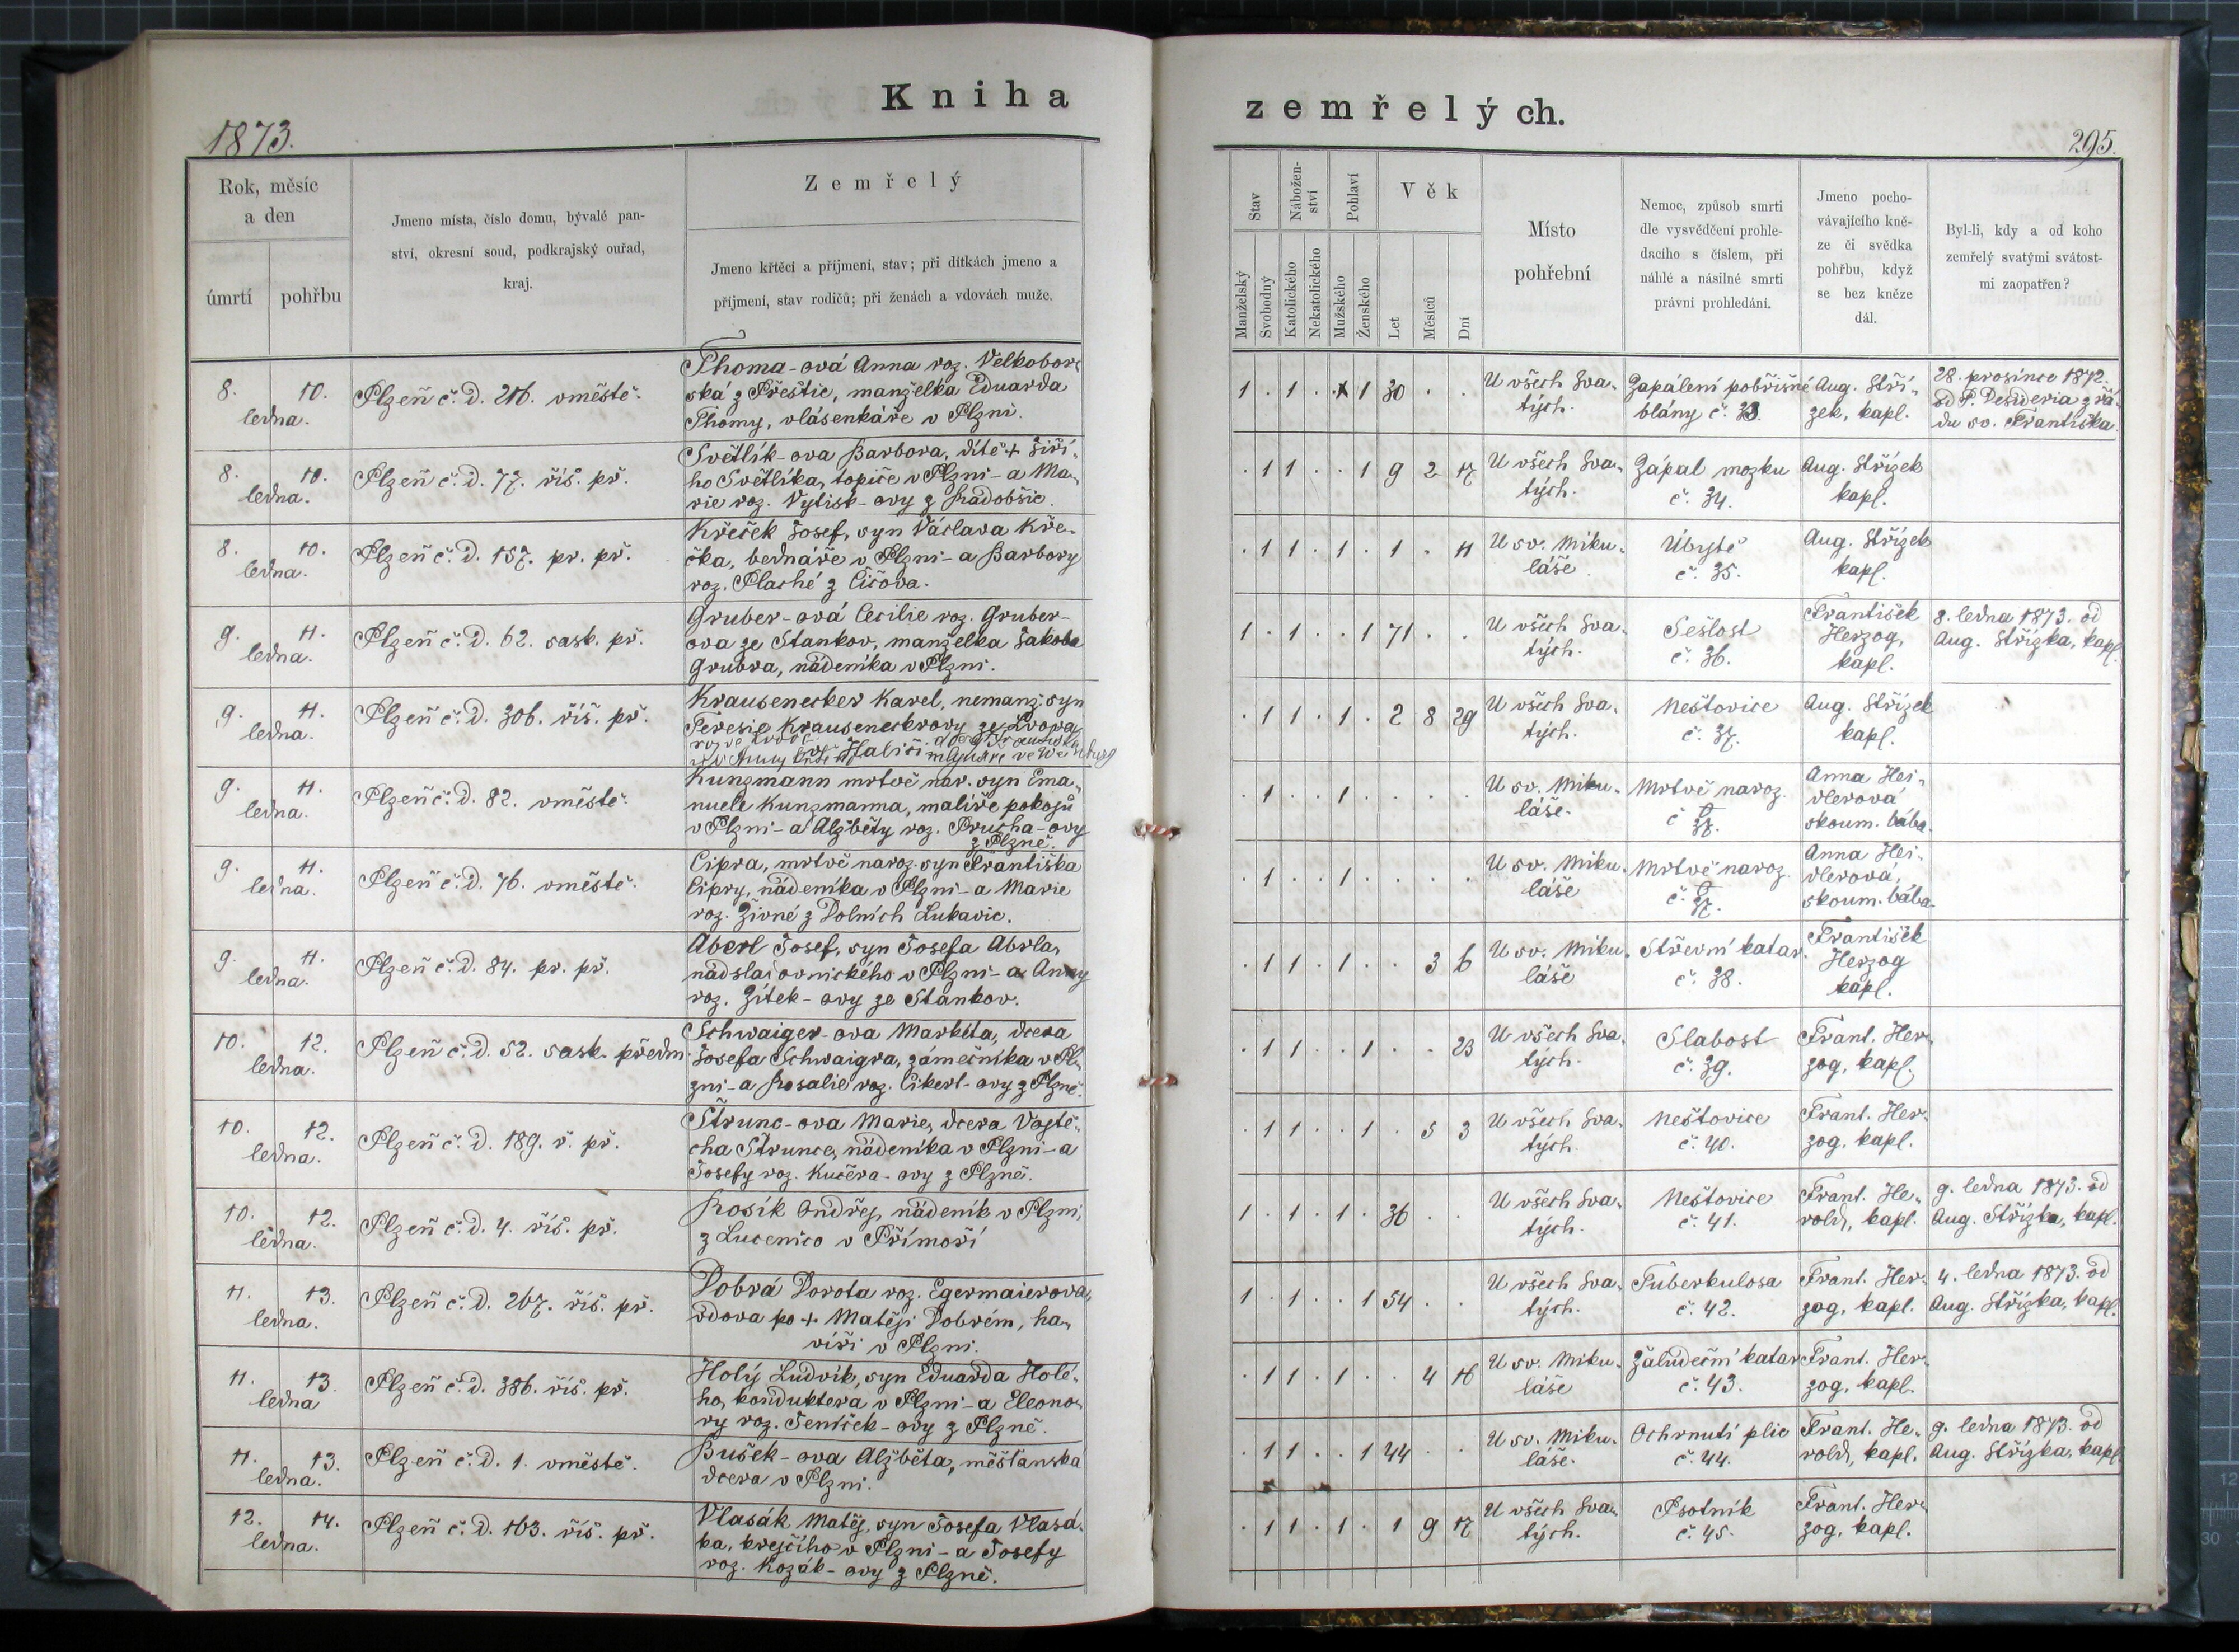 Kniha
zemřelých.
1873.
295.
Rok, měsíc
a den
úmrtí
pohřbu
Jmeno místa, číslo domu, bývalé pan-
ství, okresní soud, podkrajský ouřad,
kraj.
Zemřelý
Jmeno křtěcí a příjmení, stav; při dítkách jmeno a
příjmení, stav rodičů; při ženách a vdovách muže.
Stav
Manželský
Svobodný
Nábožen-
ství
Katolického
Nekatolického
Pohlaví
Mužského
Ženského
Věk
Let
Měsíců
Dní
Místo
pohřební
Nemoc, způsob smrti
dle vysvědčení prohle-
dacího s číslem, při
náhlé a násilné smrti
právní prohledání.
Jmeno pocho-
vávajícího kně-
ze či svědka
pohřbu, když
se bez kněze
dál.
Byl-li, kdy a od koho
zemřelý svatými svátost-
mi zaopatřen?
8. 10.
ledna.
Plzeň č. d. 216. vměstě.
Thoma-ová Anna roz. Velkobor-
ská z Přeštic, manželka Eduarda
Thomy, vlásenkáře v Plzni.
1 . 1 . . 1 30 . .
U všech Sva-
tých.
Zapálení pobřišné
blány č. 33.
Aug. Stří-
zek, kapl.
28. prosince 1872.
od P. Desideria z řá-
du sv. Františka.
8. 10.
ledna.
Plzeň č. d. 77. říš. př.
Světlík-ova Barbora, dítě + Jiří-
ho Světlíka, topiče v Plzni - a Ma-
rie roz. Vytisk-ovy z Radobšic.
. 1 1 . . 1 9 2 17
U všech Sva-
tých.
Zápal mozku
č. 34.
Aug. Střízek
kapl.
8. 10.
ledna.
Plzeň č. d. 157. pr. př.
Křeček Josef, syn Václava Kře-
čka, bednáře v Plzni - a Barbory
roz. Plaché z Čičova.
. 1 1 . 1 . 1 . 11
U sv. Miku-
láše
Úbytě
č. 35.
Aug. Střízek
kapl.
9. 11.
ledna.
Plzeň č. d. 62. sask. př.
Gruber-ová Cecilie roz. Gruber-
ova ze Stankov, manželka Jakoba
Grubra, nádeníka v Plzni.
1 . 1 . . 1 71 . .
U všech Sva-
tých.
Sešlost
č. 36.
František
Herzog,
kapl.
8. ledna 1873. od
Aug. Střízka, kapl.
9. 11.
ledna.
Plzeň č. d. 306. říš. př.
Krausenecker Karel, nemanž. syn
Teresie Krauseneckrovy ze Lvova
Haliči
. 1 1 . 1 . 2 8 29
U všech Sva-
tých.
Neštovice
č. 37.
Aug. Střízek
kapl.
9. 11.
ledna.
Plzeň č. d. 82. vměstě.
Kunzmann mrtvě nar. syn Ema-
nuele Kunzmanna, malíře pokojů
v Plzni - a Alžběty roz. Prucha-ovy
z Plzně.
. 1 . . 1 . . . .
U sv. Miku-
láše.
Mrtvě naroz.
č 37.
Anna Hei-
dlerová
zkoum. bába.
9. 11.
ledna.
Plzeň č. d. 76. vměstě.
Cipra, mrtvě naroz. syn Františka
Cipry, nádeníka v Plzni - a Marie
roz. Živné z Dolních Lukavic.
. 1 . . 1 . . . .
U sv. Miku-
láše
Mrtvě naroz.
č. 37.
Anna Hei-
dlerová,
zkoum. bába.
9. 11.
ledna.
Plzeň č. d. 84. pr. př.
Aberl Josef, syn Josefa Abrla,
nádslajovnického v Plzni - a Anny
roz. Zítek-ovy ze Stankov.
. 1 1 . 1 . . 3 6
U sv. Miku-
láše
Střevní katar.
č. 38.
František
Herzog
kapl.
10. 12.
ledna.
Plzeň č. d. 52. sask. předm.
Schwaiger-ova Markéta, dcera
Josefa Schwaigra, zámečníka v Pl-
zni - a Rosalie roz. Cikert-ovy z Plzně.
. 1 1 . . 1 . . 23
U všech Sva-
tých.
Slabost
č. 39.
Frant. Her-
zog, kapl.
10. 12.
ledna.
Plzeň č. d. 189. ř. př.
Štrunc-ova Marie, dcera Vojtě-
cha Štrunce, nádeníka v Plzni - a
Josefy roz. Kučera-ovy z Plzně.
. 1 1 . . 1 . 5 3
U všech Sva-
tých.
Neštovice
č. 40.
Frant. Her-
zog, kapl.
10. 12.
ledna.
Plzeň č. d. 4. říš. př.
Rosík Ondřej, nádeník v Plzni,
z Lucenico v Přímoří
1 . 1 . 1 . 36 . .
U všech Sva-
tých.
Neštovice
č. 41.
Frant. He-
rold, kapl.
9. ledna 1873. od
Aug. Střízka, kapl.
11. 13.
ledna.
Plzeň č. d. 267. říš. př.
Dobrá Dorota roz. Egermaierova,
vdova po + Matěji Dobrém, ha-
víři v Plzni.
1 . 1 . . 1 54 . .
U všech Sva-
tých.
Tuberkulosa
č. 42.
Frant. Her-
zog, kapl.
4. ledna 1873. od
Aug. Střízka, kapl.
11. 13.
ledna
Plzeň č. d. 386. říš. př.
Holý Ludvík, syn Eduarda Holé-
ho, konduktera v Plzni - a Eleono-
ry roz. Jeníček-ovy z Plzně.
. 1 1 . 1 . . 4 16
U sv. Miku-
láše
Žaludeční katar
č. 43.
Frant. Her-
zog, kapl.
11. 13.
ledna.
Plzeň č. d. 1. vměstě.
Bušek-ova Alžběta, měšťanská
dcera v Plzni.
. 1 1 . . 1 44 . .
U sv. Miku-
láše.
Ochrnutí plic
č. 44.
Frant. He-
rold, kapl.
9. ledna 1873. od
Aug. Střízka, kapl
12. 14.
ledna.
Plzeň č. d. 163. říš. př.
Vlasák Matěj, syn Josefa Vlasá-
ka, krejčího v Plzni - a Josefy
roz. Kozák-ovy z Plzně.
. 1 1 . 1 . 1 9 17
U všech Sva-
tých.
Psotník
č. 45.
Frant. Her-
zog, kapl.